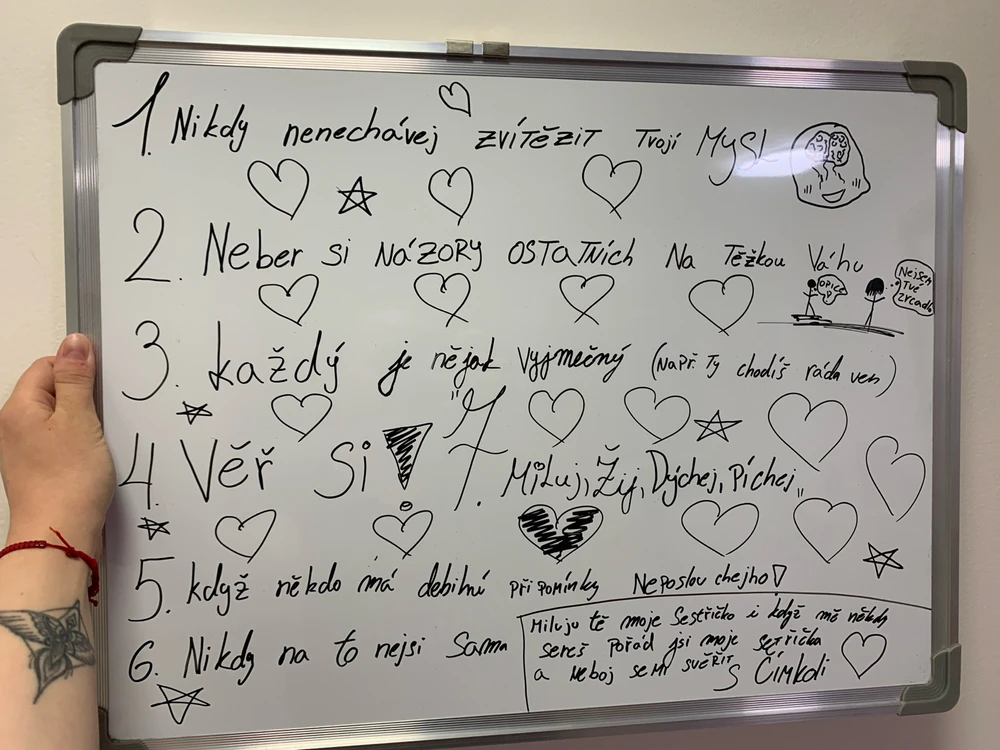 1. Nikdy nenechávej ZVÍTĚZIT Tvojí MYSL
2. Neber si NÁZORY OSTATNÍCH Na TĚŽkou Váhu
OPICE :P
Nejsem Tvé Zrcadlo
3. každý je nějak vyjmečný (Např. Ty chodíš ráda ven)
4. Věř Si!
7. "Miluj, Žij, Dýchej, Píchej"
5. když někdo má debilní připomínky Neposlouchejho!
6. Nikdy na to nejsi Sama
Miluju tě moje Sestřičko i když mě někdy
sereš Pořád jsi moje sestřička
a Neboj se mi SVĚŘIT
S Čímkoli